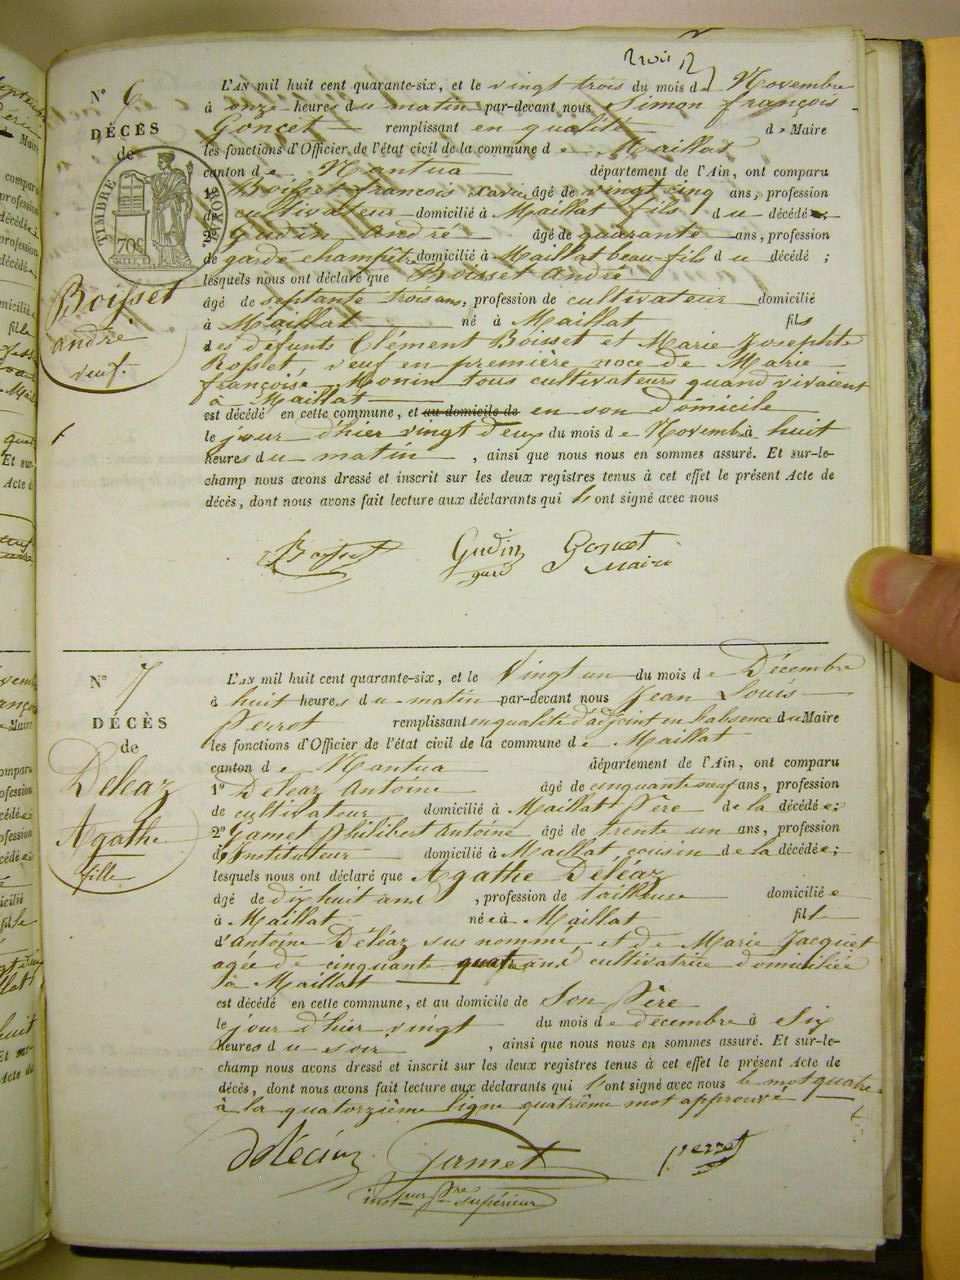 N° 6
DÉCÈS
de
TIMBRE ROYAL
70c
Boisset
andré
veuf.
L'AN mil huit cent quarante-six, et le vingt trois du mois de Novembre
à onze heures du matin par-devant nous Simon françois
Goncet remplissant en qualité de Maire
les fonctions d'Officier de l'état civil de la commune de Maillat
canton de Nantua département de l'Ain, ont comparu
1° Boisset françois xavier âgé de vingt cinq ans, profession
de cultivateur domicilié à Maillat fils du décédé;
2° Gudin André âgé de quarante ans, profession
de garde champêtre domicilié à Maillat beau-fils du décédé;
lesquels nous ont déclaré que Boisset andré
âgé de septante trois ans, profession de cultivateur domicilié
à Maillat né à Maillat fils
des défunts Clément Boisset et Marie Josephte
Rosset, veuf en première noce de Marie
françoise Monin tous cultivateurs quand vivaient
à Maillat
est décédé en cette commune, et au domicile de en son domicile
le jour d'hier vingt deux du mois de Novemb à huit
heures du matin, ainsi que nous nous en sommes assuré. Et sur-le-
champ nous avons dressé et inscrit sur les deux registres tenus à cet effet le présent Acte de
décès, dont nous avons fait lecture aux déclarants qui ont signé avec nous
Boisset Gudin Goncet
gard Maire
N° 7
DÉCÈS
de
Déléaz
Agathe
fille
L'AN mil huit cent quarante-six, et le Vingt un du mois de Décembre
à huit heures du matin par-devant nous Jean Louis
Perret remplissant en qualité d'adjoint en l'absence du Maire
les fonctions d'Officier de l'état civil de la commune de Maillat
canton de Nantua département de l'Ain, ont comparu
1° Déléaz Antoine âgé de cinquante neuf ans, profession
de cultivateur domicilié à Maillat Père de la décédée;
2° Gamet Philibert Antoine âgé de trente un ans, profession
d'Instituteur domicilié à Maillat cousin de la décédée;
lesquels nous ont déclaré que Agathe Déléaz
âgé de dix huit ans, profession de tailleuse domiciliée
à Maillat née à Maillat fille
d'Antoine Déléaz sus nommé, et de Marie Jacquet
agée de cinquante quatre ans cultivatrice domiciliée
à Maillat
est décédé en cette commune, et au domicile de Son Père
le jour d'hier vingt du mois de décembre à Six
heures du soir, ainsi que nous nous en sommes assuré. Et sur-le-
champ nous avons dressé et inscrit sur les deux registres tenus à cet effet le présent Acte de
décès, dont nous avons fait lecture aux déclarants qui ont signé avec nous le mot quatre
à la quatorzième ligne quatrième mot approuvé
Déléaz Gamet Perret
supérieur